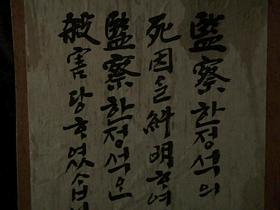 監察한정석의
死因을糾明하여
監察한정석은
殺害당하였습